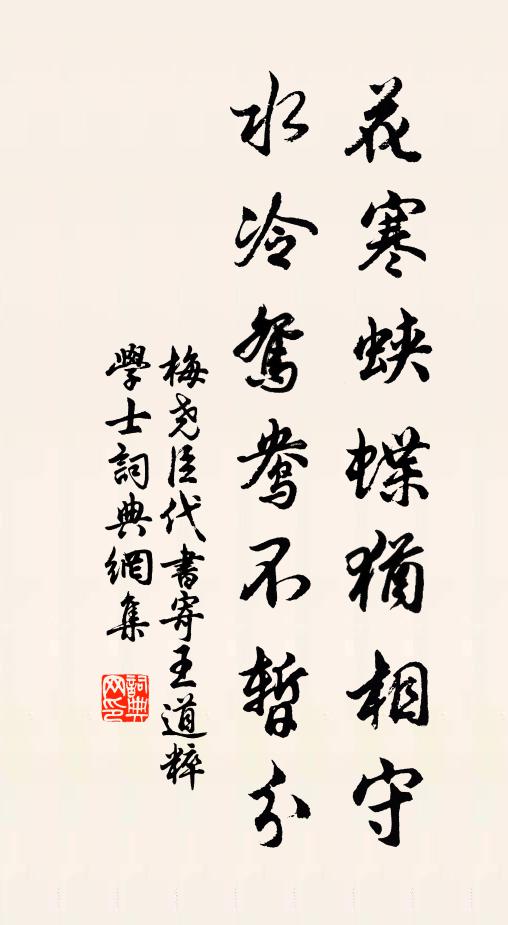 花寒蛺蝶猶相守
水冷鴛鴦不暫分
梅尧臣代書寄王道粹
學士詞典網集
詞典
网印